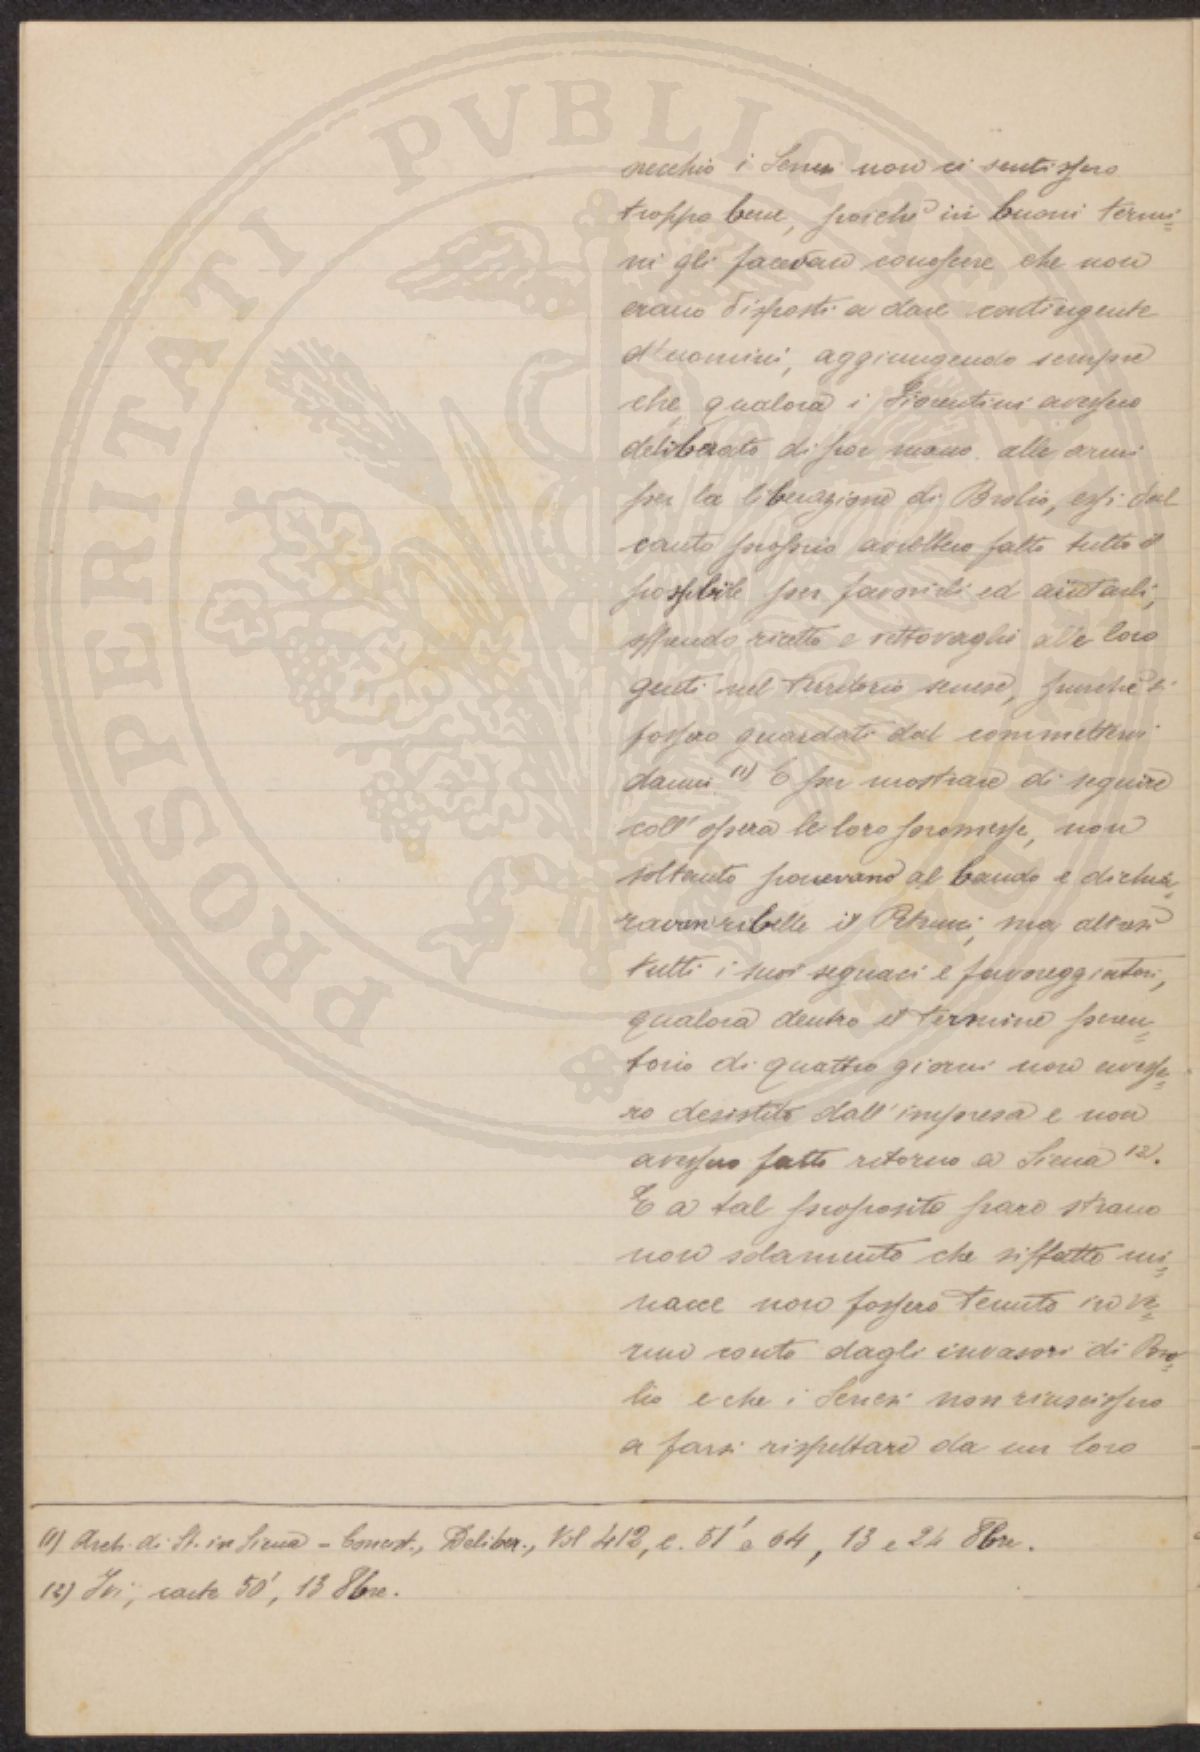 recchio i Senesi non ci sentissero
troppo bene, poichè in buoni termi=
ni gli facevan conoscere che non
erano disposti a dare contingente
d'uomini, aggiungendo sempre
che, qualora i Fiorentini avessero
deliberato di por mano alle armi
per la liberazione di Brolio, essi dal
canto proprio avrebbero fatto tutto il
possibile per favorirli ed aiutarli,
offrendo ricetto e vettovaglie alle loro
genti nel territorio senese, purchè si
fossero guardati dal commettervi
danni (1) E per mostrare di seguire
coll'opera le loro promesse, non
soltanto ponevano al bando e dichia=
ravan ribelle il Petrucci, ma altresì
tutti i suoi seguaci e favoreggiatori,
qualora dentro il termine peren=
torio di quattro giorni non avesse=
ro desistito dall'impresa e non
avessero fatto ritorno a Siena (2).
E a tal proposito pare strano
non solamente che siffatte mi=
nacce non fossero tenute in ve=
run conto dagli invasori di Bro=
lio e che i Senesi non riuscissero
a farsi rispettare da un loro
(1) Arch. di St. in Siena - Concist., Deliber., Vol 412, c. 51' e 64, 13 e 24 8bre.
(2) Ivi, carte 50', 13 8bre.
PROSPERITATI PVBLICAE